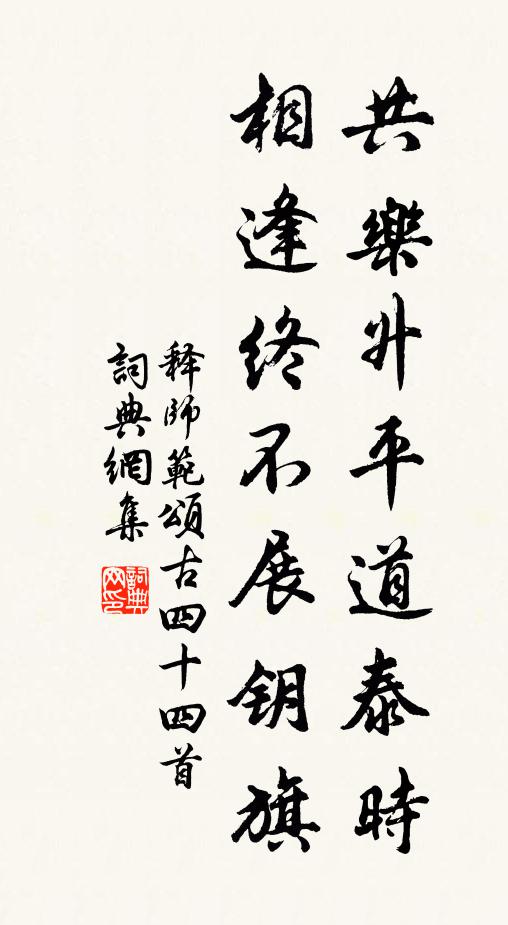 共樂升平道泰時
相逢终不展钥旗
释師範頌古四十四首
詞典網集
詞典
网印